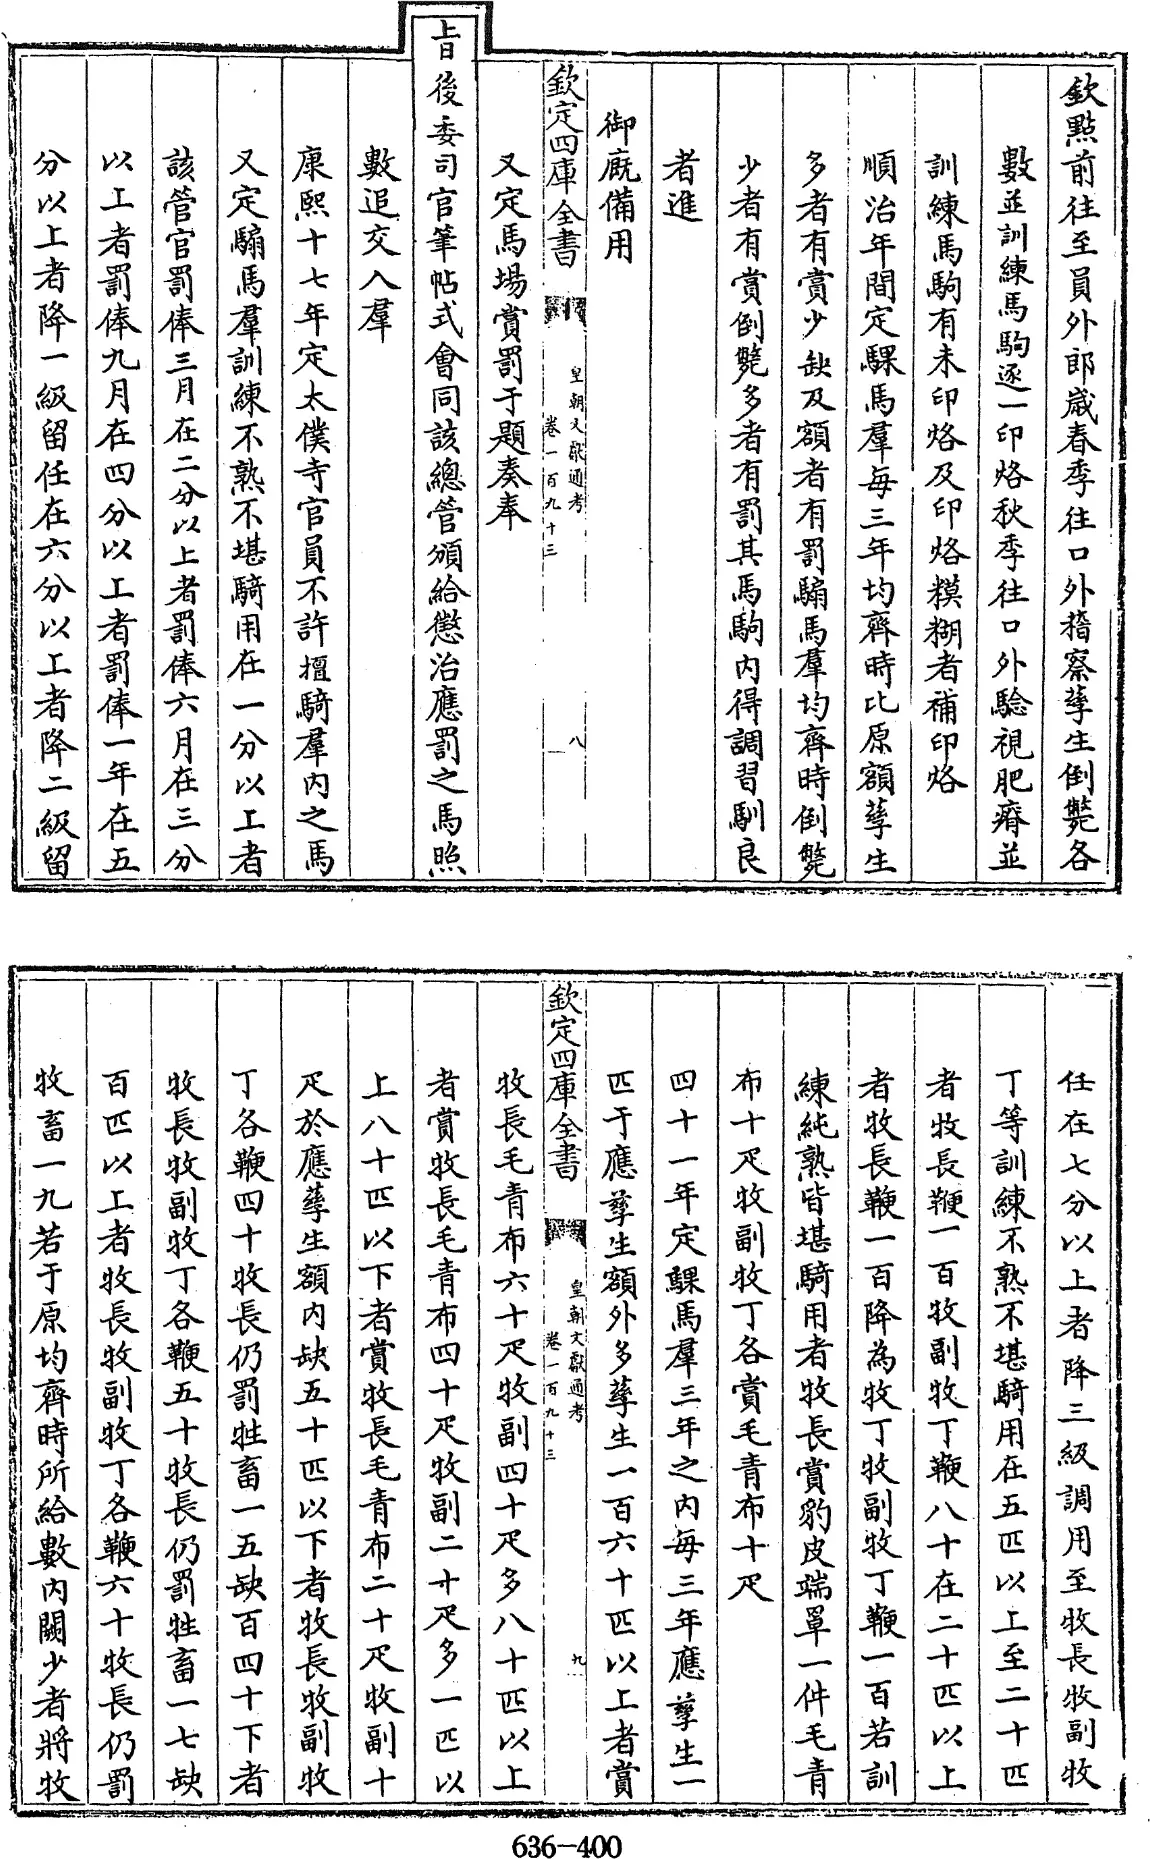 欽點前往至員外郎歳春季往口外稽察孳生倒斃各
數並訓練馬駒逐一印烙秋季往口外騐視肥瘠並
訓練馬駒有未印烙及印烙糢糊者補印烙
順治年間定騍馬羣每三年均齊時比原額孳生
多者有賞少缺及額者有罰騸馬羣均齊時倒斃
少者有賞倒斃多者有罰其馬駒内得調習馴良
者進
御廐備用
欽定四庫全書
皇朝文獻通考
卷一百九十三
八
又定馬場賞罰于題奏奉
上㫖後委司官筆帖式會同該總管頒給懲治應罰之馬照
數追交入羣
康熙十七年定太僕寺官員不許擅騎羣内之馬
又定騸馬羣訓練不熟不堪騎用在一分以上者
該管官罰俸三月在二分以上者罰俸六月在三分
以上者罰俸九月在四分以上者罰俸一年在五
分以上者降一級留任在六分以上者降二級留
任在七分以上者降三級調用至牧長牧副牧
丁等訓練不熟不堪騎用在五匹以上至二十匹
者牧長鞭一百牧副牧丁鞭八十在二十匹以上
者牧長鞭一百降為牧丁牧副牧丁鞭一百若訓
練純熟皆堪騎用者牧長賞豹皮端罩一件毛青
布十疋牧副牧丁各賞毛青布十疋
四十一年定騍馬羣三年之内每三年應孳生一
匹于應孳生額外多孳生一百六十匹以上者賞
欽定四庫全書
皇朝文獻通考
卷一百九十三
九
牧長毛青布六十疋牧副四十疋多八十匹以上
者賞牧長毛青布四十疋牧副二十疋多一匹以
上八十匹以下者賞牧長毛青布二十疋牧副十
疋於應孳生額内缺五十匹以下者牧長牧副牧
丁各鞭四十牧長仍罰牲畜一五缺百四十下者
牧長牧副牧丁各鞭五十牧長仍罰牲畜一七缺
百匹以上者牧長牧副牧丁各鞭六十牧長仍罰
牧畜一九若于原均齊時所給數内闕少者將牧
636-400